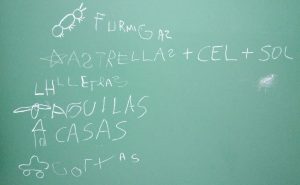 FURMIGAS
ASTRELLAS + CEL + SOL
LLETRAS
AQUILAS
CASAS
GOTAS